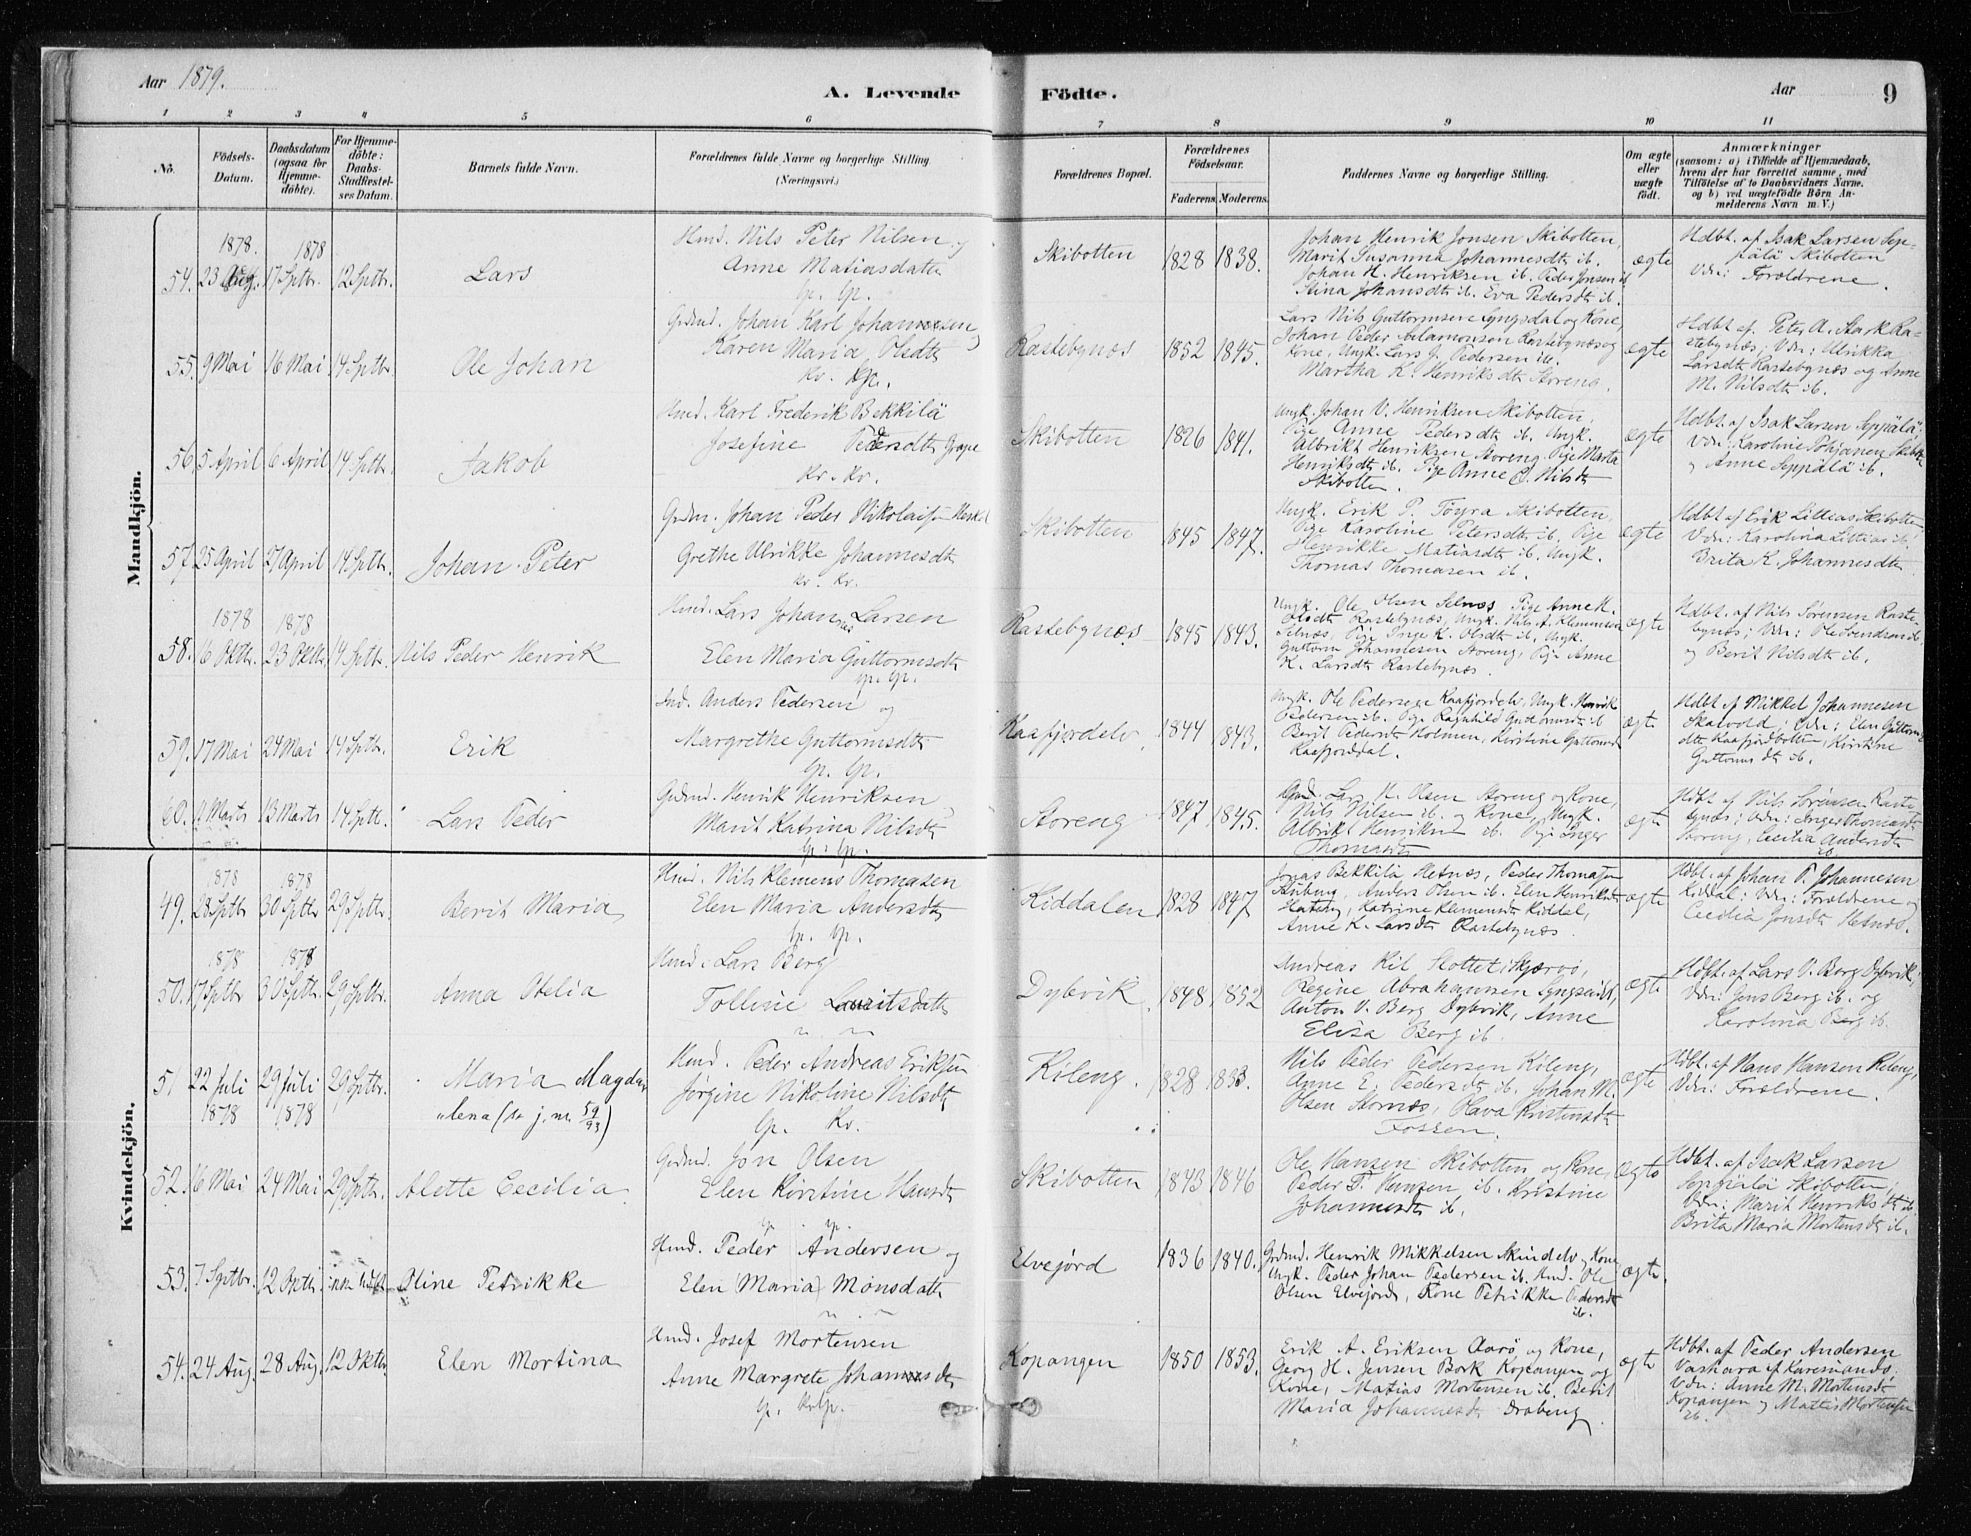 Aar 1879.
A. Levende Födte.
Aar
9
1 2 3 4 5 6 7 8 9 10 11
No.
Födsels-Datum.
Daabsdatum (ogsaa for Hjemme-döbte).
For Hjemme-döbte: Daabs-Stadfæstel-ses Datum.
Barnets fulde Navn.
Forældrenes fulde Navne og borgerlige Stilling (Næringsvei.)
Forældrenes Bopæl.
Forældrenes Födselsaar.
Faderens. Moderens.
Faddernes Navne og borgerlige Stilling.
Om ægte eller uægte födt.
Anmærkninger
(saasom: a) i Tilfælde af Hjemmedaab,
hvem der har forrettet samme, med
Tilföielse af to Daabsvidners Navne.
og b) ved uægtefödte Börn An-
melderens Navn m. V.)
Mandkjön.
54. 1878. 23 Aug. 1878 17 Sptbr. 12 Sptbr. Lars
Hmd. Nils Peter Nilsen og
Anne Matiasdatter
gp. gp.
Skibotten 1828 1838.
Johan Henrik Jonsen Skibotten,
Marit Susanna Johannesdtr ib.
Johan H. Henriksen ib. Peder Jonsen ib
Stina Johansdtr ib. Eva Pedersdtr ib.
ægte
Hdbt. af Isak Larsen Sep-
pälä Skibotten
Vdn: Forældrene.
55. 9 Mai 16 Mai 14 Sptbr. Ole Johan
Grdmd. Johan Karl Johannessen
Karen Maria Olsdtr
Kv. Gp.
Rastebynæs 1852 1845.
Lars Nils Guttormsen Lyngsdal og Kone,
Johan Peder Salamonsen Rastebynæs og
Kone, Ungk. Lars J. Pedersen ib.
Martha K. Henriksdtr Storeng.
ægte
Hdbt. af Peter A. Ra-
stebynæs, Vdn: Ulrikka
Larsdtr Rastebynæs og Anne
M. Nilsdtr ib.
56. 5 April 6 April 14 Sptbr. Jakob
Hmd. Karl Frederik Bekkilä
Josefine Pedersdtr Grape
Kv. Kv.
Skibotten 1826 1841.
Ungk. Johan V. Henriksen Skibotten,
Pige Anne Pedersdtr ib. Ungk.
Albrikt Henriksen Storeng, Pige Marta
Henriksdtr ib. Pige Anne Nilsdtr
Skibotten.
ægte
Hdbt. af Isak Larsen Seppälä
Vdn: Karoline Pohjanen Skibotten
og Anne Seppälä ib.
57. 25 April 27 April 14 Sptbr. Johan Peter
Grdm. Johan Peder Nikolaisen
Grethe Ulrikke Johannesdtr
Kv. Kv.
Skibotten 1845 1847.
Ungk. Erik P. Töyra Skibotten,
Pige Karoline Petersdtr ib. Pige
Henrikke Matiasdtr ib. Ungk.
Thomas Thomasen ib.
ægte
Hdbt. af Erik Littias Skibotten
Vdn: Karolina Littias ib.
Brita K. Johannesdtr
58. 1878 16 Oktbr. 1878 23 Oktbr. 14 Sptbr. Nils Peder Henrik
Hmd. Lars Johan Larsen
Elen Maria Guttormsdtr
gp. gp.
Rastebynæs 1845 1843.
Ungk. Ole Olsen Selnæs Pige Anne K.
Olsdtr Rastebynæs, Ungk. Nils A. Klemmsen
Selnæs, Pige Inge K. Olsdtr ib. Ungk.
Guttorm Johannesen Storeng, Pige Anne
K. Larsdtr Rastebynæs.
ægte
Hdbt. af Nils Sørensen Raste-
bynæs; Vdn: Ole Svendsen ib.
og Berit Nilsdtr ib.
59. 17 Mai 24 Mai 14 Sptbr. Erik
Ind. Anders Pedersen og
Margrethe Guttormsdtr
Gp. Gp.
Kaafjordelv 1844 1843.
Ungk. Ole Pedersen Kaafjordelv Ungk. Henrik
Pedersen ib. Pige Ragnhild Guttormsdtr ib
Berit Pedersdtr Holmen, Kirstine Guttormsdtr
Kaafjorddal.
ægte
Hdbt. af Mikkel Johannesen
Skarvold; Vdn: Elen Guttorms-
dtr Kaafjordbotten, Kirstine
Guttormsdtr ib.
60. Marts 13 Marts 14 Sptbr. Lars Peder
Grdmd. Henrik Henriksen
Marit Katrina Nilsdtr
Gp. Gp.
Storeng 1847 1845.
Grdmd. Lars N. Olsen Storeng og Kone,
Nils Nilsen ib. og Kone, Ungk.
Albrikt Henriksen ib. Pige Inger
Thomasdtr
ægte
Hdbt. af Nils Sørensen Raste-
bynæs; Vdn: Inger Thomasdtr
Storeng, Cecilia Andersdtr
ib.
Kvindekjön.
49. 1878 28 Sptbr 1878 30 Sptbr 29 Sptbr. Berit Maria
Hmd. Nils Klemens Thomasen
Elen Maria Andersdtr
Gp. Gp.
Kiddalen 1828 1847
Jonas Bekkilä Hetnæs, Peder Thomasen
Anders Olsen ib. Elen Henriksdtr
Katrine Klemensdtr Kiddal,
Anne K. Larsdtr Rastebynæs.
ægte
Hdbt. af Johan P. Johannesen
Kiddal: Vdn: Forældrene og
Cecilia Jonsdtr Hetnæs.
50. 1878 17 Sptbr 1878 30 Sptbr. 29 Sptbr. Anna Otelia
Hmd. Lars Berg
Tolline Lauritsdatter
Dybvik 1848 1852
Andreas Kil Skjærvö,
Regine Abrahamsen Lyngseidet,
Anton V. Berg Dybvik, Anne
Elisa Berg ib.
ægte
Hdbt. af Lars V. Berg Dybvik,
Vdn: Jens Berg ib. og
Karolina Berg ib.
51 22 Juli 1878 29 Juli 1878 29 Sptbr. Maria Magda-
lena (se j. nr. 59/93)
Hmd. Peder Andreas Eriksen
Jørgine Nikoline Nilsdtr
Gp. Kv.
Kileng. 1828 1833.
Nils Peder Pedersen Kileng,
Anne E. Pedersdtr ib. Johan M.
Olsen Stornæs, Olava Kristensdtr
Fossen.
ægte
Hdbt. af Hans Hansen Kileng,
Vdn: Forældrene.
52. 16 Mai 24 Mai 29 Sptbr. Alette Cecilia
Grdmd. Jon Olsen
Elen Kirstine Hansdtr
gp. gp.
Skibotten 1843 1846
Ole Hansen Skibotten og Kone,
Peder P. Hansen ib. Kristine
Johannesdtr ib.
ægte
Hdbt. af Isak Larsen
Seppälä Skibotten;
Vdn: Marit Henriksdtr ib.
Brita Maria Mortensdtr ib.
53. 7 Sptbr. 12 Oktbr. ikke hdbt. Oline Petrikke
Hmd. Peder Andersen og
Elen (Maria) Mønsdatter
Elvejord 1836 1840.
Grdmd. Henrik Mikkelsen Skindelv og Kone
Ungk. Peder Johan Pedersen ib. Hmd. Ole
Olsen Elvejord, Kone Petrikke Pedersdtr
ib.
ægte.
54. 24 Aug. 28 Aug. 12 Oktbr. Elen Mortina
Hmd. Josef Mortensen
Anne Margrete Johannesdtr
Gp. KvGp.
Kopangen 1850 1853.
Erik A. Eriksen Aarö og Kone,
Georg H. Jensen Bork Kopangen og
Kone, Matias Mortensen ib. Berit
Maria Johannesdtr Draberg.
ægte
Hdbt. af Peder Andersen
Vashara af Karesuando.
Vdn: Anne M. Mortensdtr
Kopangen og Mattis Mortensen
ib.